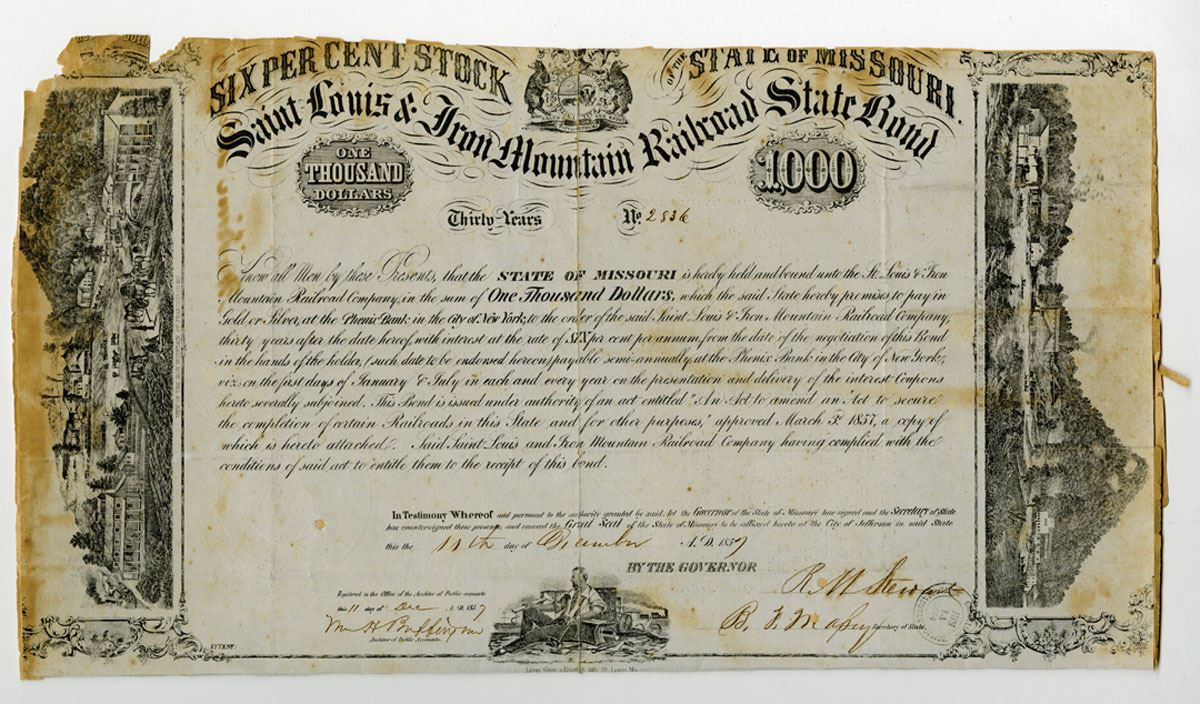 SIX PER CENT STOCK
OF THE STATE OF MISSOURI.
Saint Louis & Iron Mountain Railroad State Bond
ONE
THOUSAND
DOLLARS
1000
Thirty Years
No. 2836
Know all Men by these Presents, that the STATE OF MISSOURI is hereby held and bound unto the St. Louis & Iron
Mountain Railroad Company, in the sum of One Thousand Dollars, which the said State hereby promises to pay in
Gold or Silver, at the Phenix Bank in the City of New York, to the order of the said Saint Louis & Iron Mountain Railroad Company,
thirty years after the date hereof, with interest at the rate of SIX per cent per annum from the date of the negotiation of this Bond
in the hands of the holder, (such date to be endorsed hereon) payable semi-annually at the Phenix Bank in the City of New York,
viz: on the first days of January & July in each and every year on the presentation and delivery of the interest Coupons
hereto severally subjoined. This Bond is issued under authority of an act entitled "An Act to amend an Act to secure
the completion of certain Railroads in this State and for other purposes," approved March 3d 1857, a copy of
which is hereto attached. Said Saint Louis and Iron Mountain Railroad Company having complied with the
conditions of said act to entitle them to the receipt of this bond.
In Testimony Whereof and pursuant to the authority granted by said Act the Governor of the State of Missouri has signed and the Secretary of State
has countersigned these presents, and caused the Great Seal of the State of Missouri to be affixed hereto at the City of Jefferson in said State
this the 11th day of December A.D. 1857
BY THE GOVERNOR
R. M. Stewart
Registered in the Office of the Auditor of Public accounts
this 11 day of Dec A.D. 1857
Wm H Buffington
Auditor of Public Accounts.
B. F. Massey Secretary of State.
ATTEST.